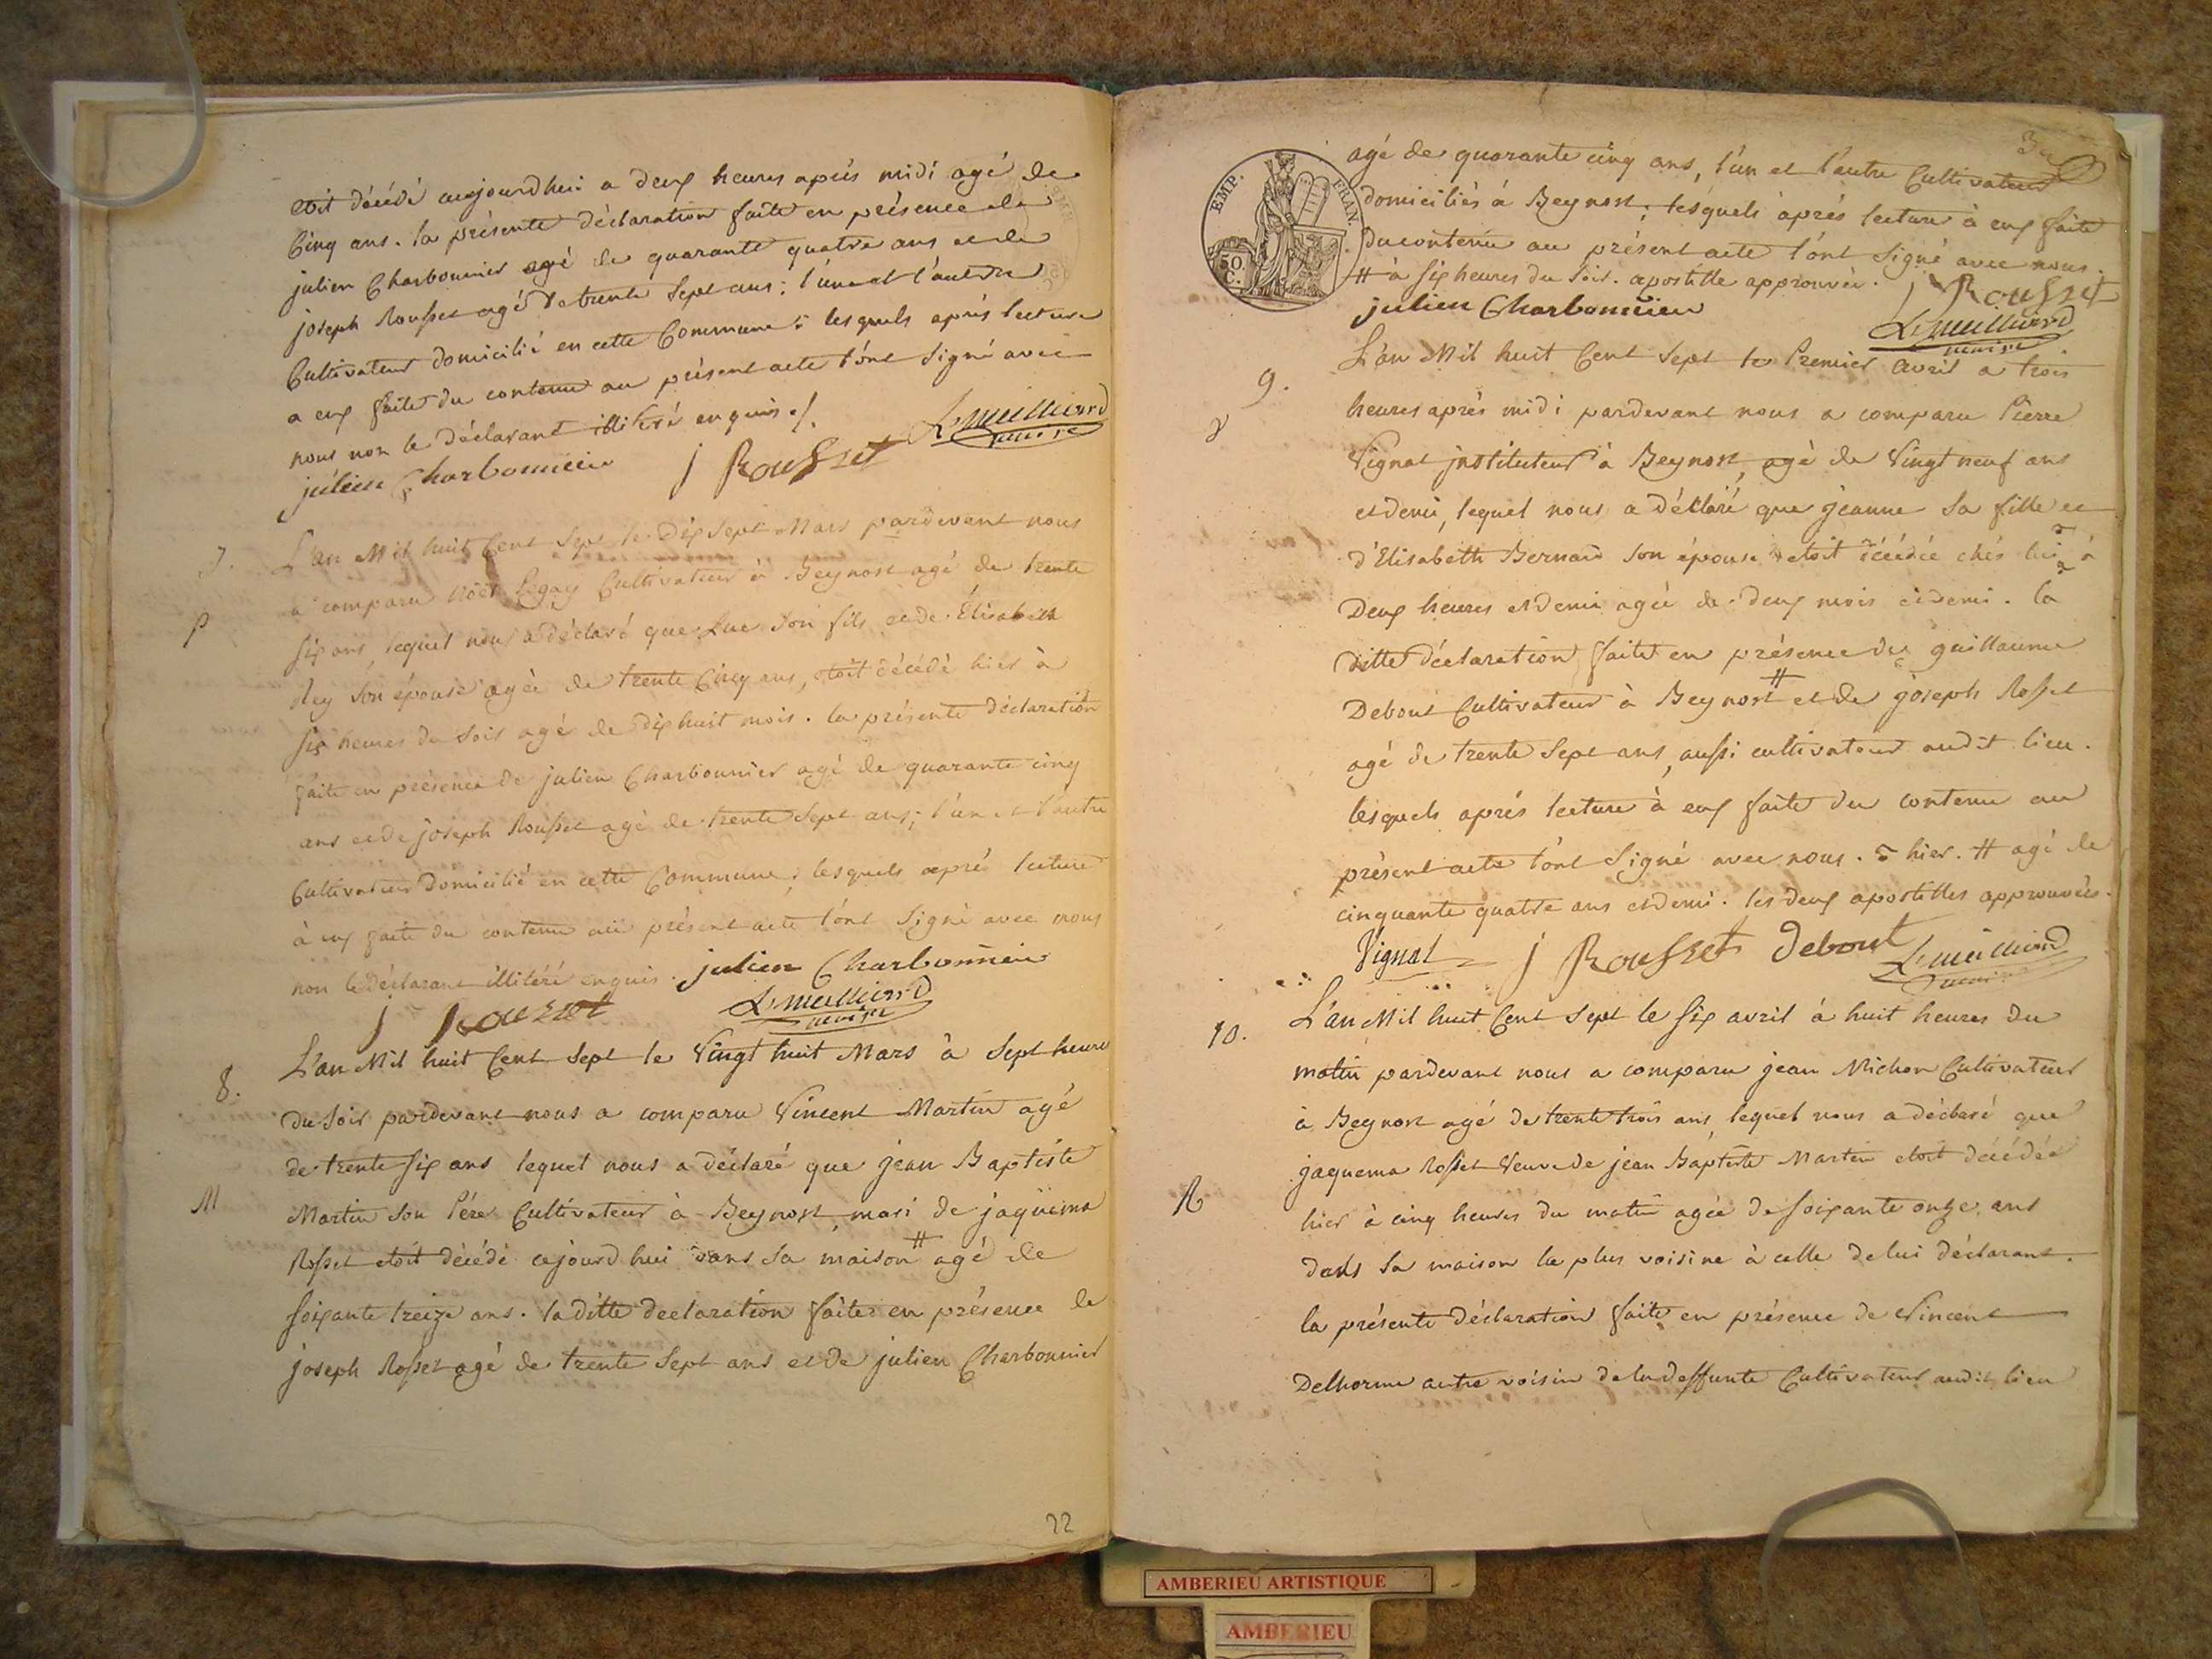 etoit décédé aujourdhui a deux heures aprés midi agé de
Cinq ans. la présente déclaration faite en présence de
julien Charbonnier agé de quarante quatre ans et de
joseph Rousset agé de trente Sept ans; l'un et l'autre
Cultivateur domicilié en cette Commune; lesquels aprés lecture
a eux faite du contenu au présent acte l'ont Signé avec
nous non le déclarant illitéré enquis ./.
julien Charbonnier j Rousset Lemulliord
maire
7. L'an Mil huit Cent Sept le Dix Sept Mars pardevant nous
a comparu Noël Legay Cultivateur à Beynost agé de trente
P
six ans, lequel nous a déclaré que Luc Son fils et de Elisabeth
Rey son épouse agée de trente Cinq ans, etoit décédé hier à
six heures du Soir agé de dix huit mois. la présente déclaration
faite en présence de julien Charbonnier agé de quarante cinq
ans et de joseph Rousset agé de trente Sept ans; l'un et l'autre
Cultivateur Domicilié en cette Commune; lesquels aprés lecture
à eux faite du contenu au présent acte l'ont Signé avec nous
non le déclarant illitéré enquis. julien Charbonnier
j Rousset
maire
8. L'an Mil huit Cent Sept le Vingt huit Mars à Sept heures
du Soir pardevant nous a comparu Vincent Martin agé
de trente six ans lequel nous a déclaré que jean Baptiste
M
Martin Son Pére Cultivateur à Beynost, mari de jaquema
Rosset etoit décédé cejourd'hui dans Sa maison # agé de
Soixante treize ans. la ditte declaration faite en présence de
joseph Rosset agé de trente Sept ans et de julien Charbonnier
22
EMP. FRAN.
50 C.
agé de quarante cinq ans, l'un et l'autre Cultivateur
domiciliés à Beynost; lesquels aprés lecture à eux faite
du contenu au présent acte l'ont Signé avec nous.
# à six heures du Soir. apostille approuvée.
j Rousset
julien Charbonnier
maire
9. L'an Mil huit Cent Sept le Premier Avril a trois
heures aprés midi pardevant nous a comparu Pierre
Vignat jnstituteur à Beynost, agé de Vingt neuf ans
et demi, lequel nous a déclaré que jeanne Sa fille et
d'Elisabeth Bernard Son épouse etoit décédée chés lui à
Deux heures et demi agée de deux mois et demi. la
ditte déclaration faite en présence de guillaume
Debout Cultivateur à Beynost # et de joseph Rosset
agé de trente Sept ans, aussi cultivateur audit lieu.
lesquels aprés lecture à eux faite du contenu au
présent acte l'ont Signé avec nous. hier. # agé de
cinquante quatre ans et demi. les deux apostilles approuvées.
Vignat j Rousset debout
10. L'an Mil huit Cent Sept le six avril à huit heures du
matin pardevant nous a comparu jean Michon Cultivateur
à Beynost agé de trente trois ans, lequel nous a déclaré que
jaquema Rosset Veuve de jean Baptiste Martin etoit décédée
R
hier à cinq heures du matin agée de soixante onze ans
dans Sa maison la plus voisine à celle de lui déclarant.
la présente déclaration faite en présence de Vincent
Delhorme autre voisin de la deffunte Cultivateur audit lieu
AMBERIEU ARTISTIQUE
AMBERIEU